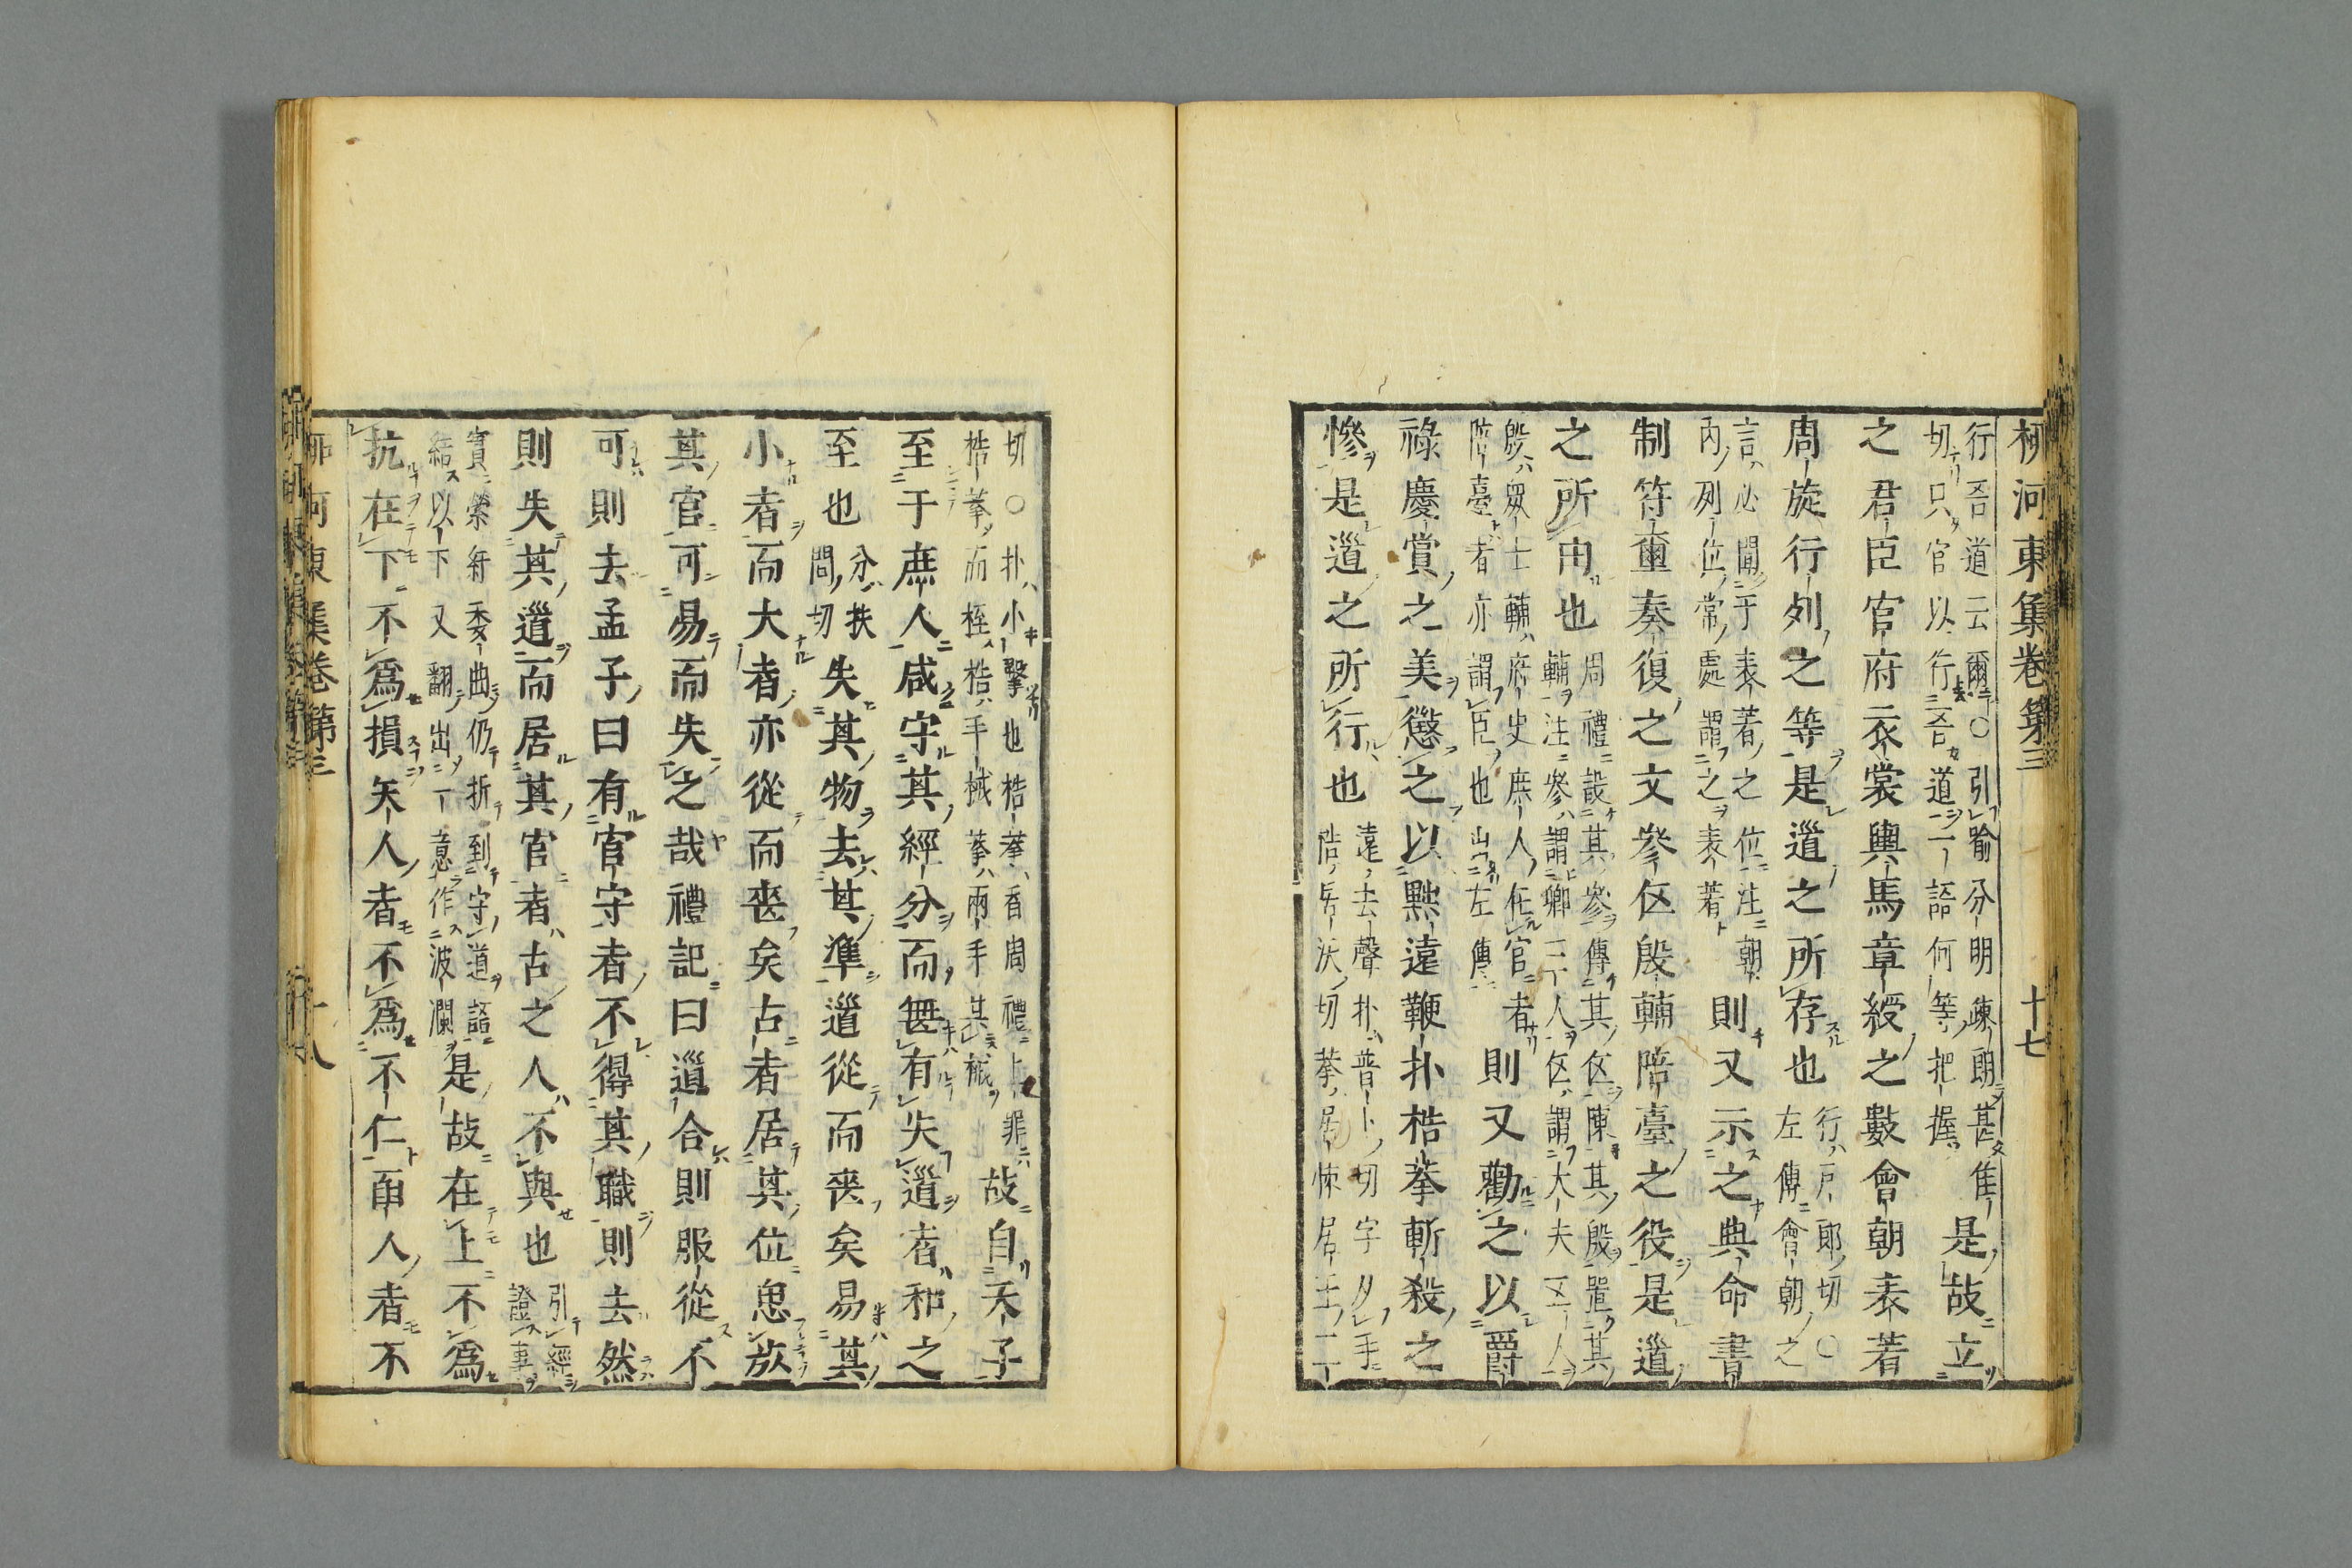 柳河東集卷第三　十七
行吾道云爾○引喻分明疎朗甚隹
切只官以行吾道一語何等把握
是故立
之君臣官府衣裳輿馬章綬之數會朝表著
周旋行列之等是道之所存也
行戶郎切○
左傳會朝之
言必聞于表著之位注朝
內列位常處謂之表著
則又示之典命書
制符璽奏復之文參伍殷輔陪臺之役是道
之所由也
周禮設其參傳其伍陳其殷置其
輔注參謂卿三人伍謂大夫五人
殷眾士輔府史庶人在官者
陪臺者亦謂臣也出左傳
則又勸之以爵
祿慶賞之美懲之以黜遠鞭扑梏拲斬殺之
慘是道之所行也
遠去聲扑普卜切字夕手
陪居沃切拲居悚居玉二
切○扑小擊也梏拲音周禮上罪
梏拲而桎梏手械拲兩手共械
故自天子
至于庶人咸守其經分而無有失道者和之
至也
分扶
問切
失其物去其準道從而喪矣易其
小者而大者亦從而喪矣古者居其位思放
其官可易而失之哉禮記曰道合則服從不
可則去孟子曰有官守者不得其職則去然
則失其道而居其官者古之人不與也
引經
證事
實縈紆委曲仍折到守道語
結以下又翻出二意作波瀾
是故在上不爲
抗在下不爲損矢人者不爲不仁函人者不
柳河東集卷第三　十八